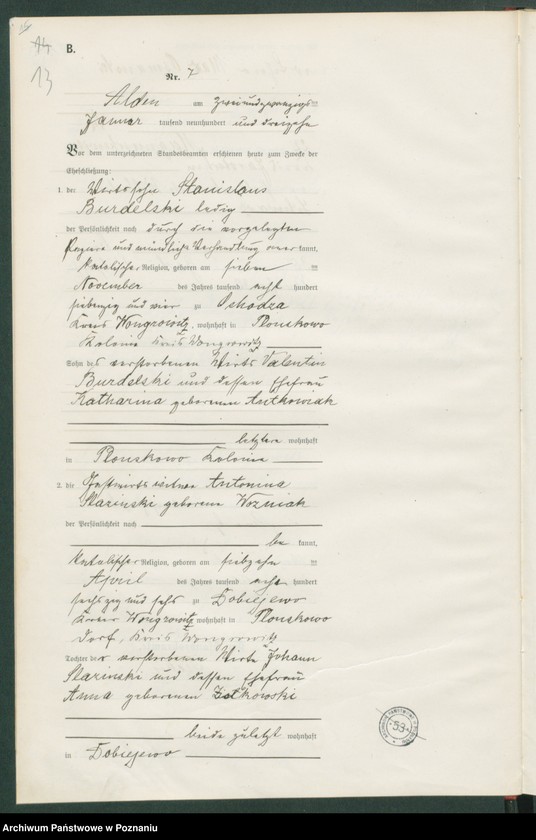 14
13
B.
Nr. 7
Alden am zweiundzwanzigs ten
Januar tausend neunhundert und dreizehn
Vor dem unterzeichneten Standesbeamten erschienen heute zum Zwecke der
Eheschließung:
1. der Wirtssohn Stanislaus
Burdelski ledig
der Persönlichkeit nach durch die vorgelegten
Papiere und mündliche Verhandlung aner kannt,
katolischer Religion, geboren am sieben ten
November des Jahres tausend acht hundert
siebenzig und vier zu Ochodza
Kreis Wongrowitz, wohnhaft in Plonskowo
Kolonie Kreis Wongrowitz
Sohn des verstorbenen Wirts Valentin
Burdelski und dessen Ehefrau
Katharina geborenen Antkowiak
letztere wohnhaft
in Plonskowo Kolonie
2. die Gastwirtswitwe Antonina
Slazinski geborene Wozniak
der Persönlichkeit nach
be kannt,
katolischer Religion, geboren am siebzehn ten
April des Jahres tausend acht hundert
sechszig und sechs zu Dobiejewo
Kreis Wongrowitz wohnhaft in Plonskowo
Dorf, Kreis Wongrowitz
Tochter des verstorbenen Wirts Johann
Slazinski und dessen Ehefrau
Anna geborenen
beide zuletzt wohnhaft
in Dobiejewo
53
Archiwum Państwowe w Poznaniu